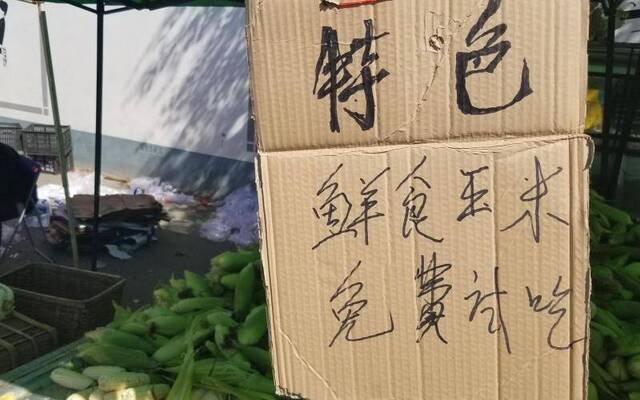 特色
鲜食玉米
免費试吃